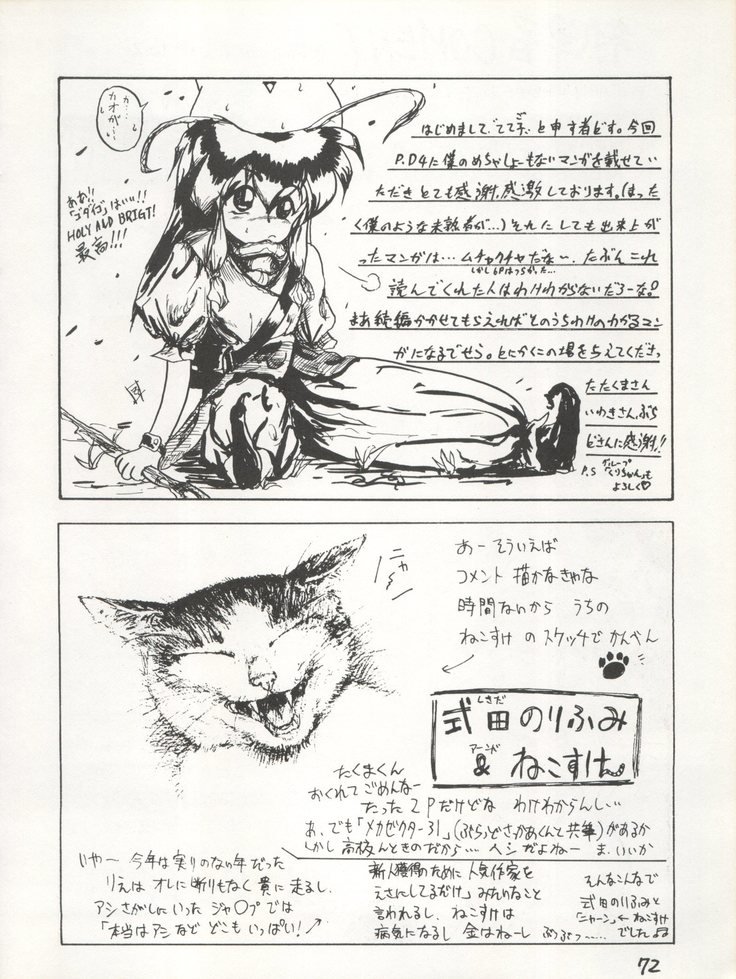 か…
カオが…
ああ!!
「ゴダイゴ」はいい!!
HOLY AND BRIGT!
最高!!!
はじめまして、てて子、と申す者どす。今回
P.D4に僕のめちゃしょーもないマンガを載せてい
ただきとても感謝、感激しております。(まった
く僕のような未熟者が…)それにしても出来上が
ったマンガは…ムチャクチャだな〜、たぶんこれ
しかし6Pはつらかった…
読んでくれた人はわけわからないだろーな。
まあ続編かかせてもらえればそのうちわけのわかるマン
ガになるでせう。とにかくこの場を与えてくださっ
たたくまさん
いわきさん、ぶら
どさんに感謝!!
P.S グループ「くりちゃん」も
よろしく♡
ニャ〜
あーそういえば
コメント 描かなきゃな
時間ないから うちの
ねこすけ のスケッチで かんべん
式田のりふみ
しきだ
アーンド
& ねこすけ
たくまくん
おくれてごめんなー
たった2Pだけどな わけわからんしい…
あ、でも「メカゼクター31」(ぶらっどさっかあくんと共筆)があるか
しかし高校んときのだから… ヘンだよねー ま、いいか
いやー 今年は実りのない年だった
りえは オレに断りもなく貴に走るし、
アシさがしにいった ジャ○プでは
「本当はアシなど どこもいっぱい!
新人獲得のために 人気作家を
えさにしてるだけ」みたいなこと
言われるし、ねこすけは
病気になるし 金はねーし ぶつぶつ……
そんなこんなで
式田のりふみと
「ニャーン」←ねこすけ
でした♪
72